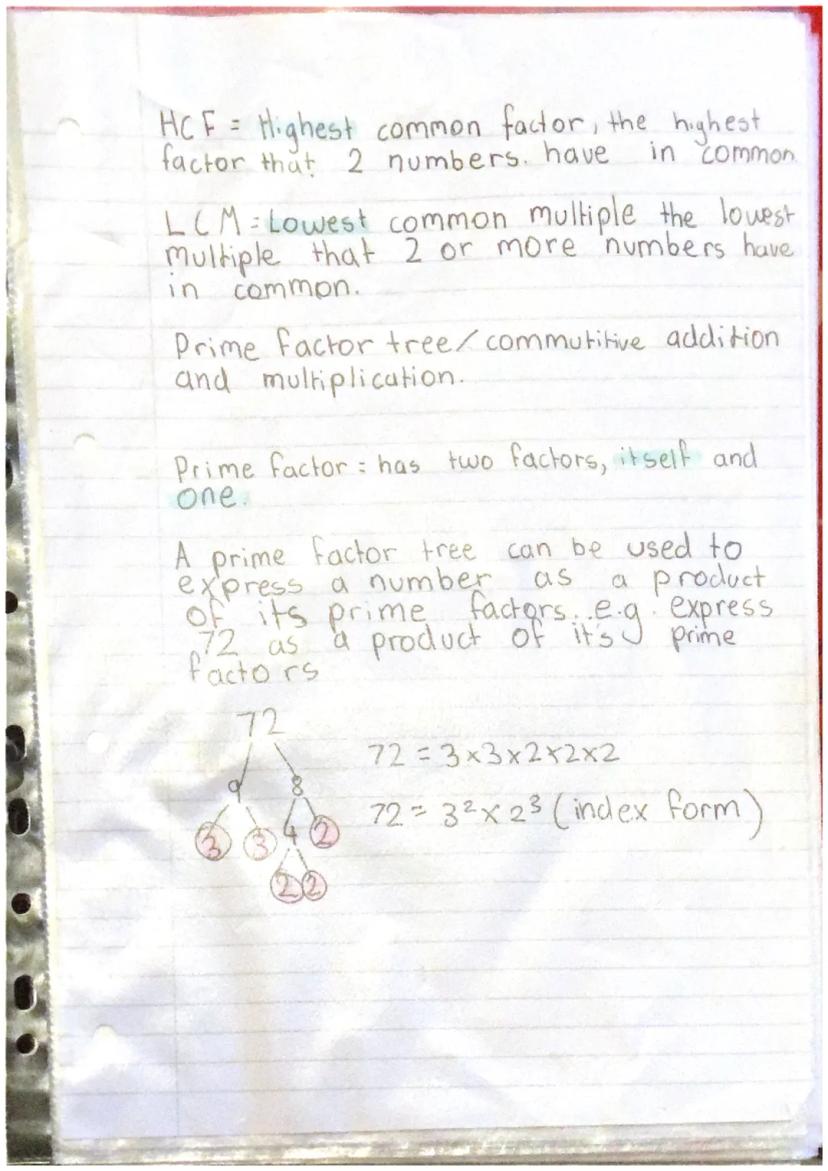 HCF = Highest common factor, the highest
factor that 2 numbers. have in common
LCM = Lowest common multiple the lowest
multiple that 2 or more numbers have
in common.
Prime factor tree/commutitive addition
and multiplication.
Prime factor : has two factors, itself and
one.
A prime factor tree can be used to
express a number as a product
of its prime factors. e.g. express
72 as a product of it's prime
factors
72
72 = 3×3×2×2×2
9 8
72 = 3²×2³ (index form)
3 3 4 2
2 2